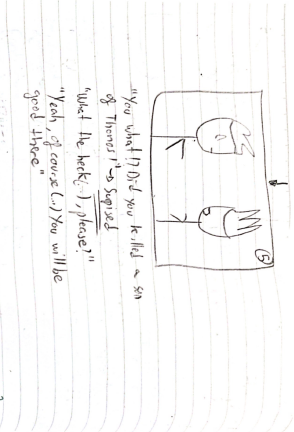 5
"You what!? Did you killed a son
of Thomas! → Suprised
"What the heck(...), please?"
"Yeah, of course (...) You will be
good there"